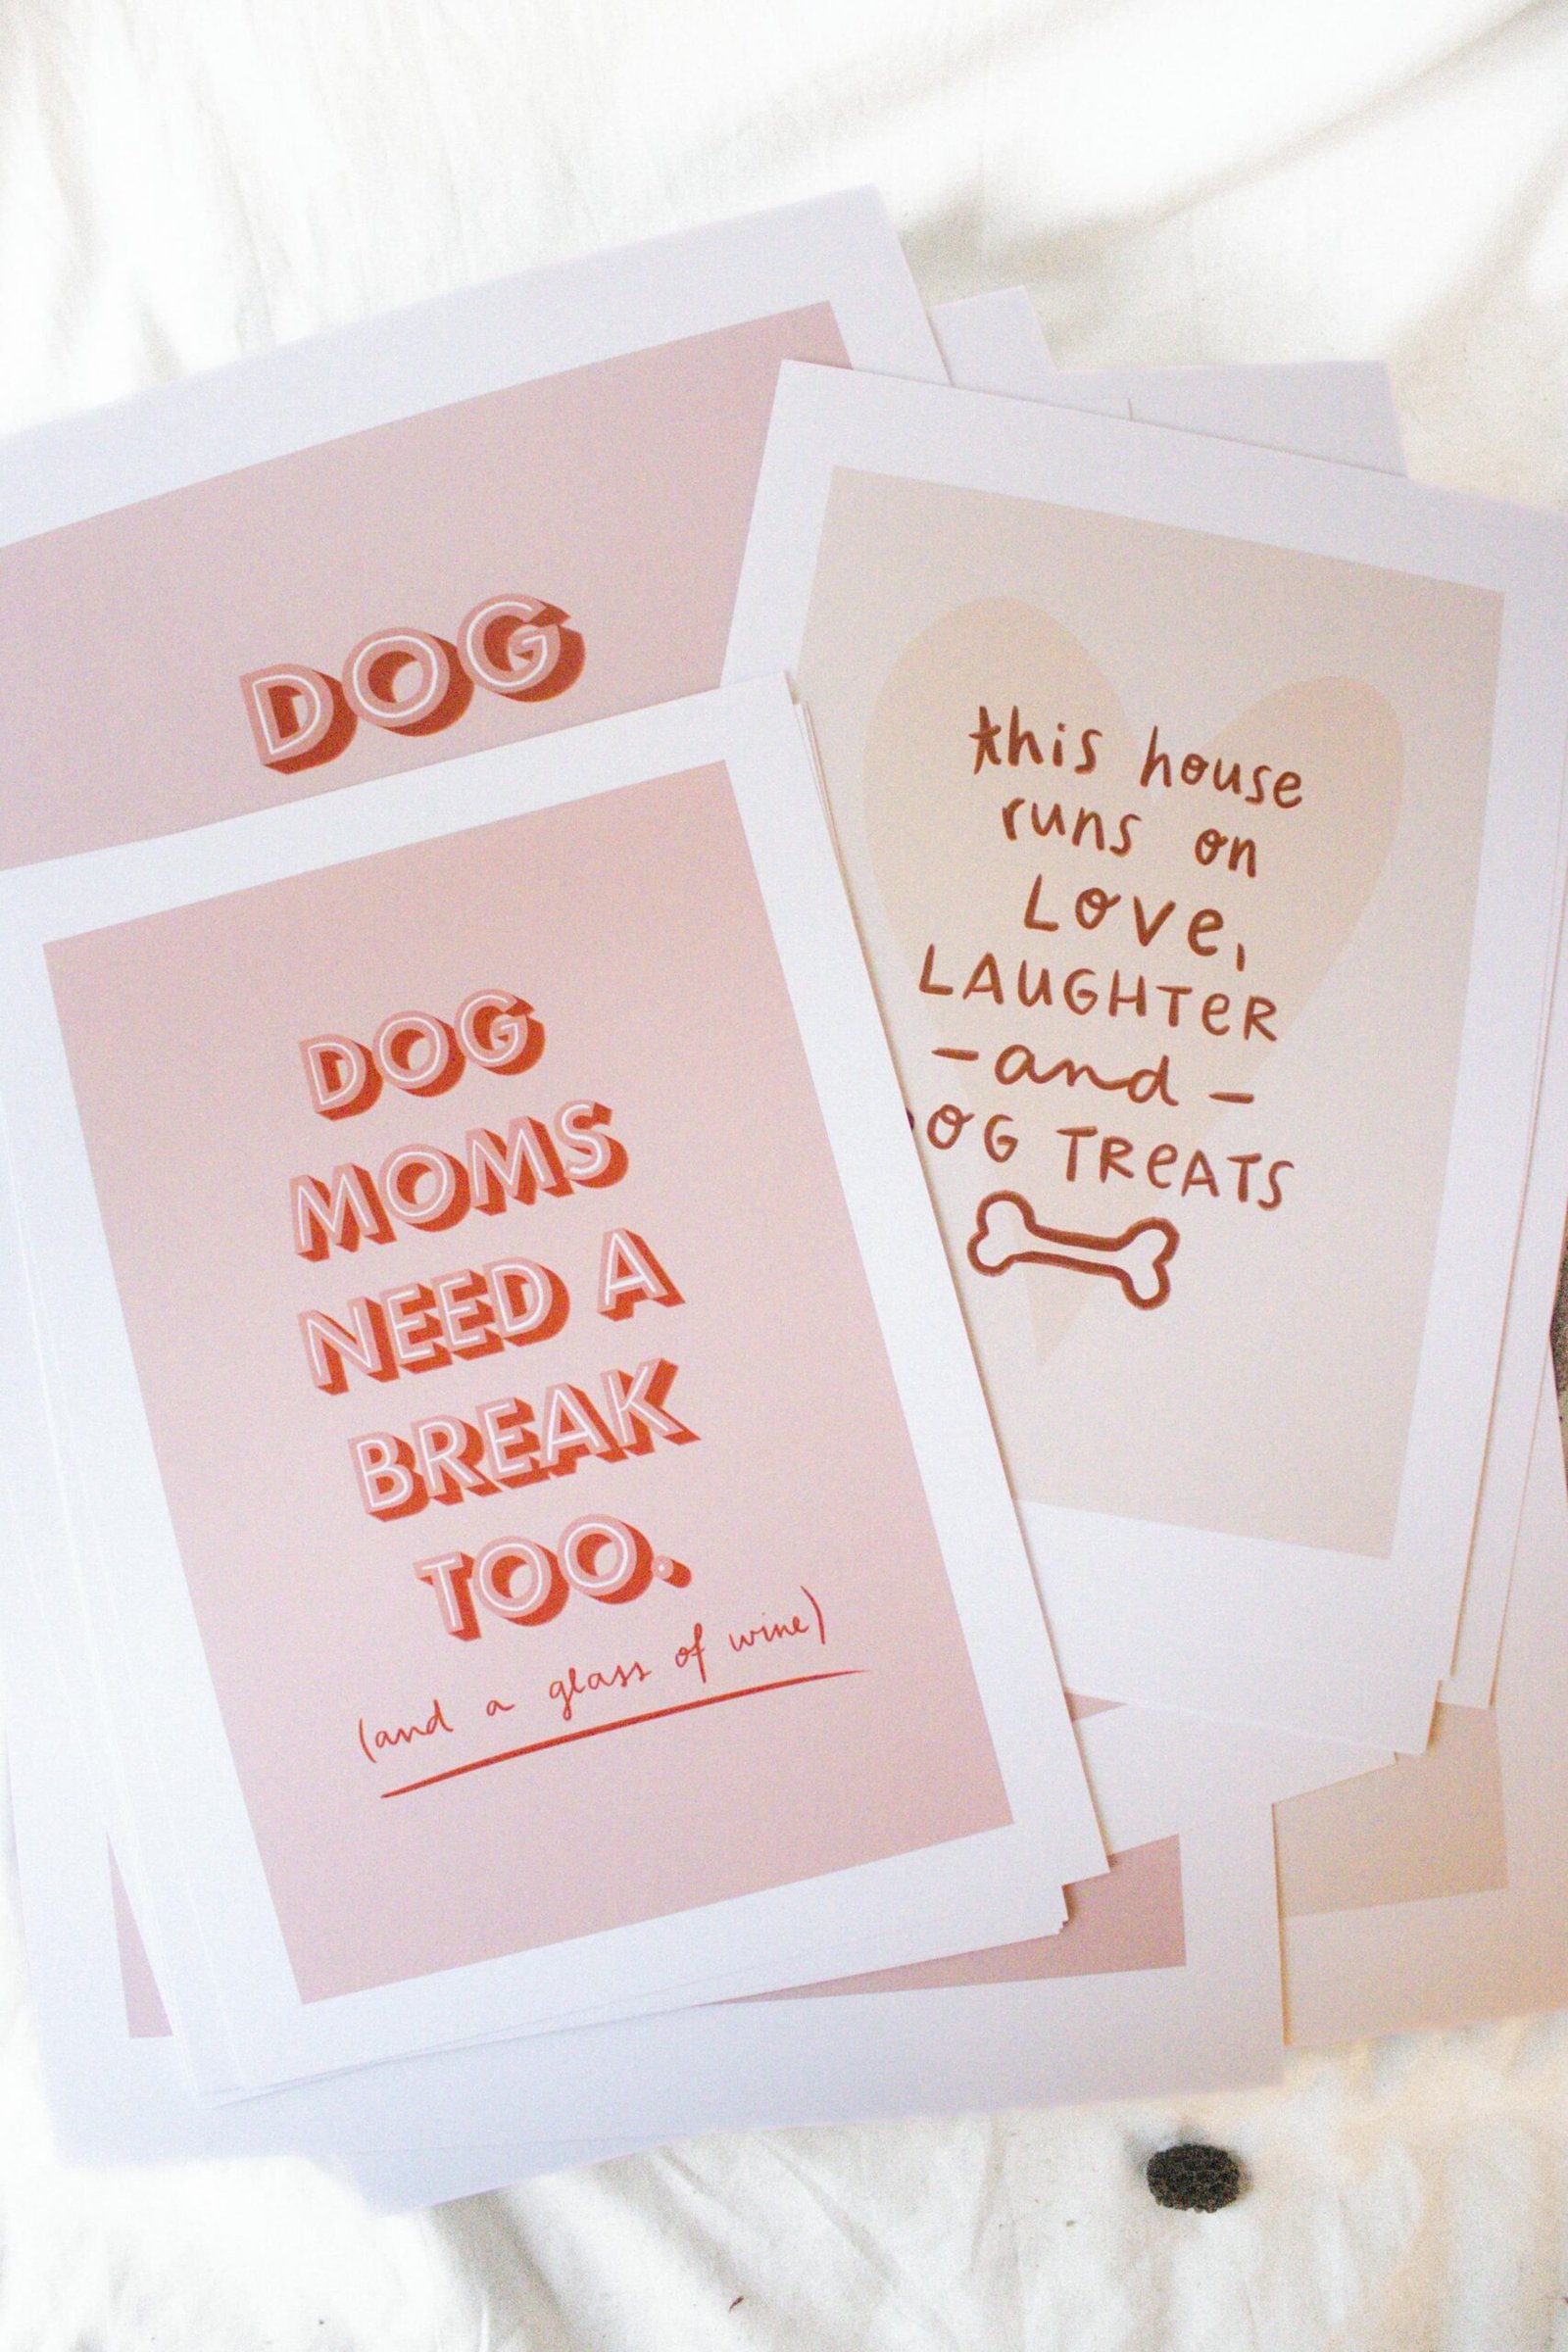 DOG
DOG
MOMS
NEED A
BREAK
TOO.
(and a glass of wine)
this house
runs on
LOVe,
LAUGHTeR
-and-
OG TReATS